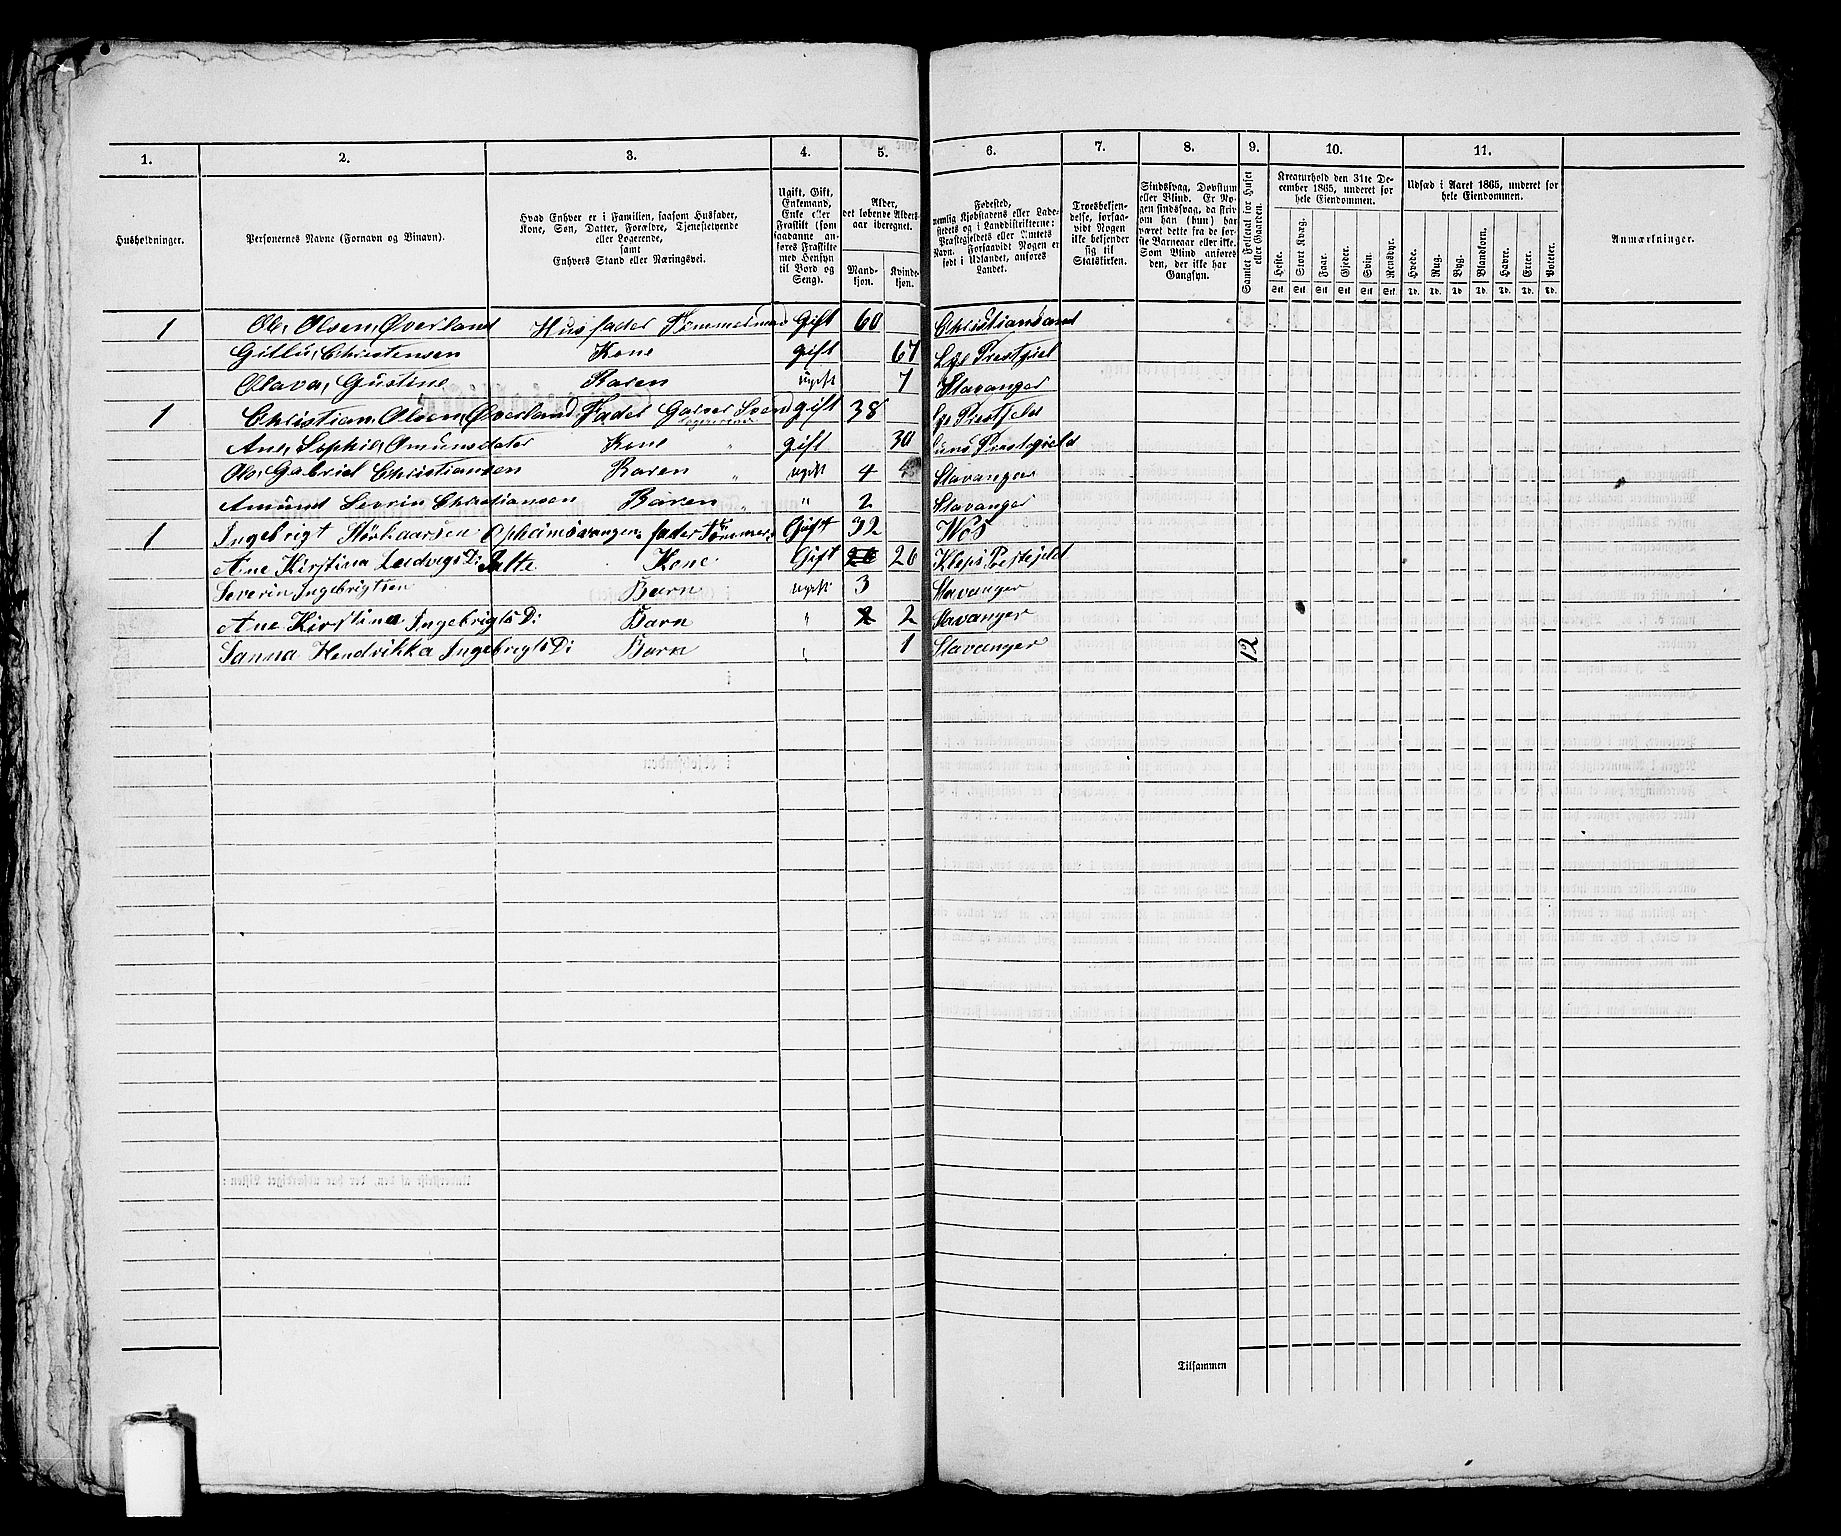 1. 2. 3. 4. 5. 6. 7. 8. 9. 10. 11.
Husholdninger.
Personernes Navne (Fornavn og Binavn).
Hvad Enhver er i Familien, saasom Husfader, Kone, Søn, Datter, Forældre, Tjenestetyende eller Logerende, samt Enhvers Stand eller Næringsvei.
Ugift, Gift, Enkemand, Enke eller Fraskilt (som saadanne anføres Fraskilte med Hensyn til Bord og Seng).
Alder, det løbende Alders- aar iberegnet.
Mand- kjøn. Kvinde- kjøn.
Fødested, nemlig Kjøbstadens eller Ladestedets og i Landdistrikterne: Præstegjeldets eller Amtets Navn. Forsaavidt Nogen er født i Udlandet, anføres Landet.
Troesbekjendelse, forsaavidt Nogen ikke bekjender sig til Statskirken.
Sindssvag, Døvstum eller Blind. Er Nogen sindssvag, da hvorvidt han (hun) har været dette fra de første Barneaar eller ikke. Som Blind anføres den, der ikke har Gangsyn.
Samlet Folketal for Huset eller Gaarden.
Kreaturhold den 31te December 1865, underet for hele Eiendommen.
Heste. Stort Kvæg. Faar. Gjeder. Svin. Rensdyr.
Udsæd i Aaret 1865, underet for hele Eiendommen.
Hvede. Rug. Byg. Blandkorn. Havre. Erter. Poteter.
Anmærkninger.
Stk. Stk. Stk. Stk. Stk. Stk. Td. Td. Td. Td. Td. Td. Td.
1 Ole Olsen Øverland Husfader Tømmermand Gift 60 Christiansand
Christensen Kone gift 67 Prestgiel
Olava, Gustine Baren ugift 7 Stavanger
1 Christian, Olsen, Øverland, Fader Svend gift 38
Ane, Sophie, Omunsdater Kone " gift 30 Prestegield
Ole, Gabriel Christiansen Baren " ugift 4 Stavanger
Amund Severin Christiansen Baren " " 2 Stavanger
1 Ingebrigt fader Tømmerm Gift 32
Ane Kirstina Ludvigs D: Kone Gift 26 26 Kleps Prestejeld
Severin Ingebrigtsen Barn ugift 3 Stavanger
Ane Kirstina Ingebrigts D: Barn " 2 2 Stavanger
Sanna Hendrikka Ingebrigts D: Barn " 1 Stavanger 12
Tilsammen